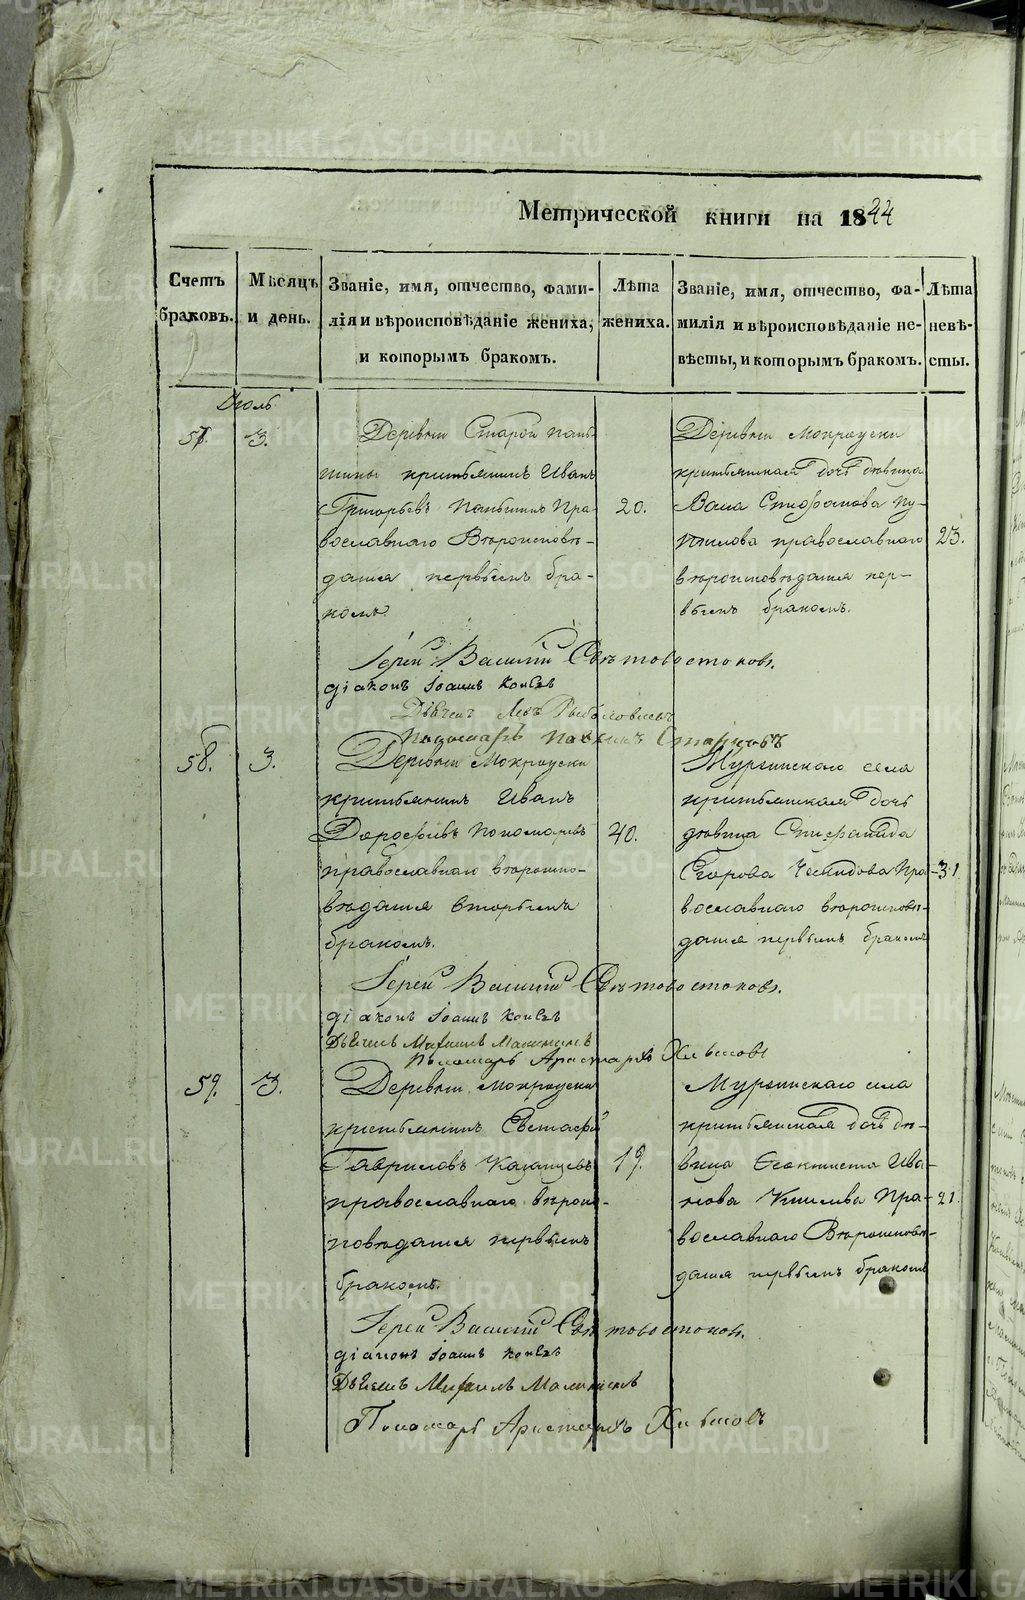 Метрической книги на 1844
Счетъ браковъ.
Мѣсяцъ и день.
Званіе, имя, отчество, фами-
лія и вѣроисповѣданіе жениха,
и которымъ бракомъ.
Лѣта жениха.
Званіе, имя, отчество, фа-
милія и вѣроисповѣданіе не-
вѣсты, и которымъ бракомъ.
Лѣта невѣ-
сты.
57. 3.
Деревни Старой Пань-
шины крестьянинъ Иванъ
Григорьевъ Паньшинъ Пра-
вославнаго Вѣроисповѣ-
данія первымъ бра-
комъ.
20.
Деревни Мокроуски
крестьянская дочь дѣвица
Васса Стефанова
православнаго
вѣроисповѣданія пер-
вымъ бракомъ.
23.
Іерей Василій Свѣтовостоковъ.
діаконъ Іоаннъ
58. 3.
Деревни Мокроуски
крестьянинъ Иванъ
Дорофѣевъ Пономаревъ
православнаго вѣроиспо-
вѣданія вторымъ
бракомъ.
40.
Мугайскаго села
крестьянская дочь
дѣвица Стефанида
Егорова Пра-
вославнаго вѣроисповѣ-
данія первымъ бракомъ
31.
Іерей Василій Свѣтовостоковъ.
діаконъ Іоаннъ
Пономарь Аристархъ
59. 3.
Деревни Мокроуски
крестьянинъ Евстафій
Гавриловъ Казанцевъ
православнаго вѣроис-
повѣданія первымъ
бракомъ.
19.
Мугайскаго села
крестьянская дочь дѣ-
вица Ѳеоктиста Ива-
нова Пра-
вославнаго Вѣроисповѣ-
данія первымъ бракомъ
21.
Іерей Василій Свѣтовостоковъ.
діаконъ Іоаннъ
Пономарь Аристархъ
METRIKI.GASO-URAL.RU